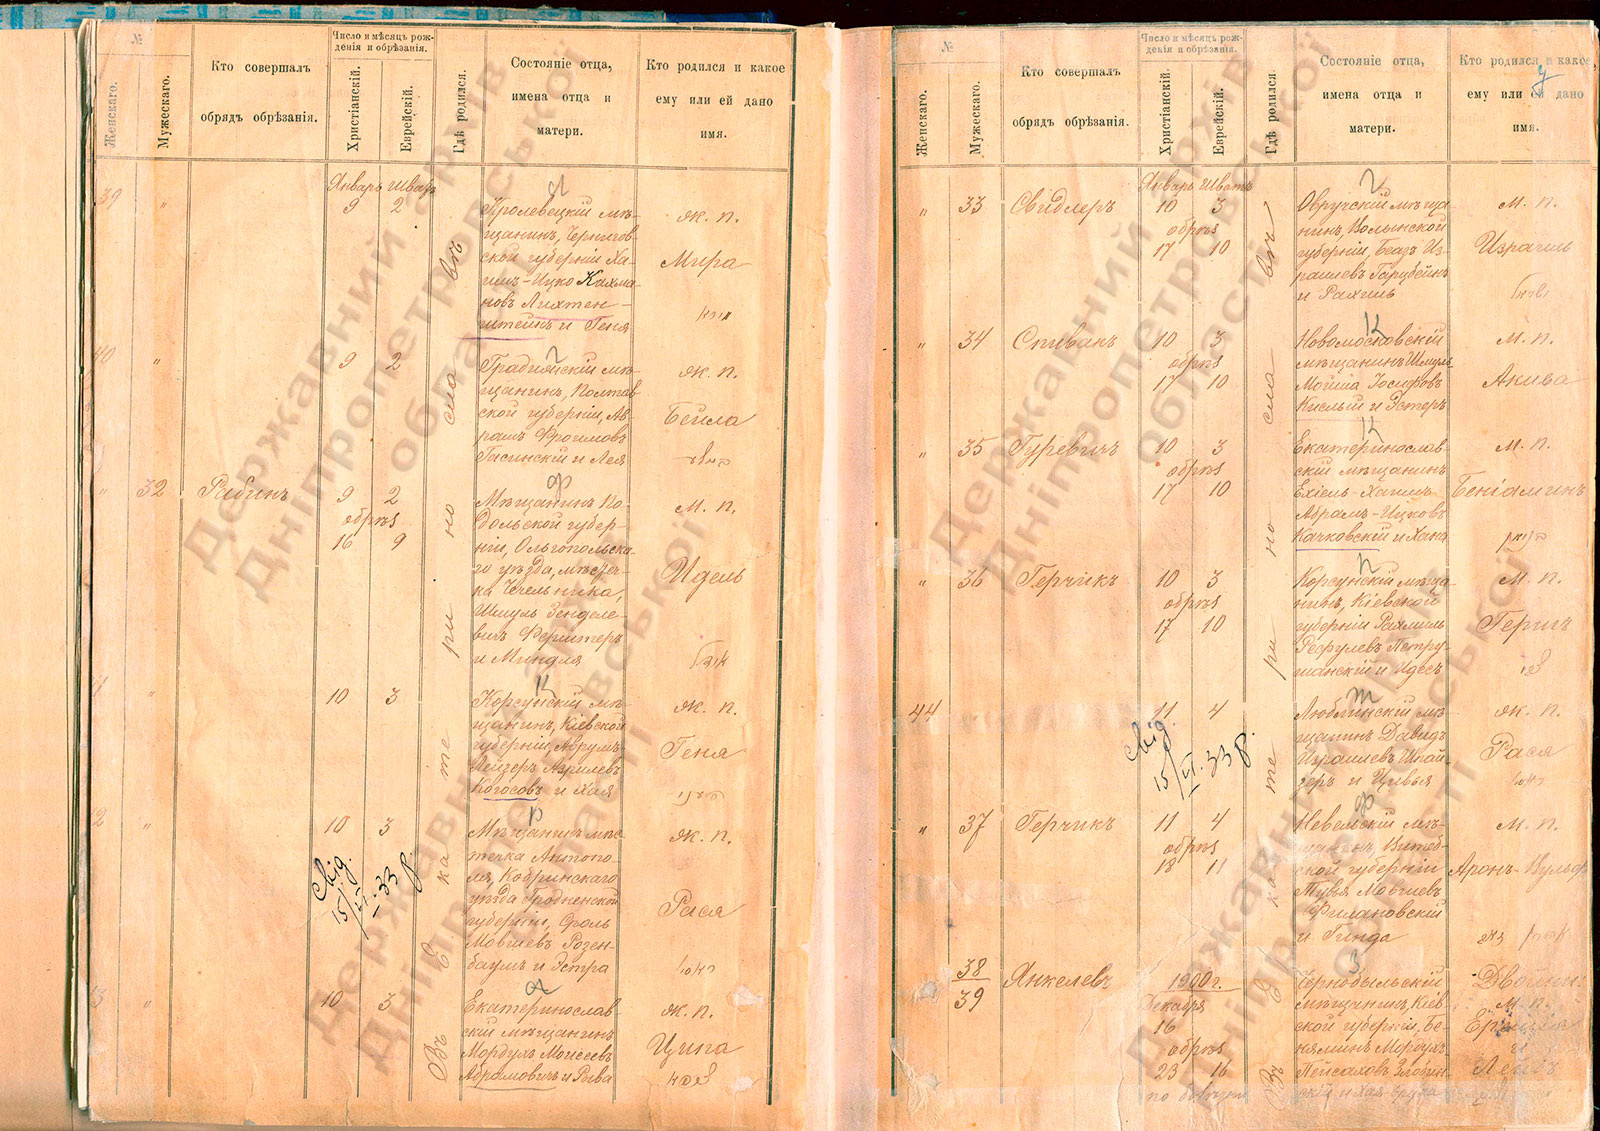 №
Число и мѣсяцъ рож-
денія и обрѣзанія.
Женскаго.
Мужескаго.
Кто совершалъ
обрядъ обрѣзанія.
Христіанскій.
Еврейскій.
Гдѣ родился.
Состояніе отца,
имена отца и
матери.
Кто родился и какое
ему или ей дано
имя.
Въ Екатеринославъ
Январь Шватъ
39 " 9 2
Л
Кролевецкій мѣ-
щанинъ, Чернигов-
ской губерніи Ха-
имъ-Ицко Кахма-
новъ Лихтен-
штейнъ и Геня
ж. п.
Мира
40 " 9 2
Г
Градижскій мѣ-
щанинъ, Полтав
ской губерніи, Ав-
рамъ Фроимовъ
Гасинскій и Лея
ж. п.
Бейла
" 32 Рабинъ 9 2
обрѣз
16 9
Ф
Мѣщанинъ По-
дольской губер-
ніи, Ольгопольска-
го уѣзда, мѣстеч-
ка Чечельника,
Шмуль Зенделе-
вичъ Фермтеръ
и Миндля
м. п.
Идель
1 " 10 3
К
Корсунскій мѣ-
щанинъ, Кіевской
губерніи, Аврумъ-
Лейзеръ Азрилевъ
Когосовъ и Хая
ж. п.
Геня
2 " 10 3
свід.
15/VI.33 р.
Р
Мѣщанинъ мѣс
течка Антопо-
ля, Кобринскаго
уѣзда Гродненской
губерніи, Сроль
Мовшевъ Розен-
баумъ и Эстра
ж. п.
Рася
3 " 10 3
А
Екатеринослав
скій мѣщанинъ
Мордухъ Моисеевъ
Абрамовичъ и Рива
ж. п.
Ципа
№
Число и мѣсяцъ рож-
денія и обрѣзанія.
Женскаго.
Мужескаго.
Кто совершалъ
обрядъ обрѣзанія.
Христіанскій.
Еврейскій.
Гдѣ родился.
Состояніе отца,
имена отца и
матери.
Кто родился и какое
ему или ей дано
имя.
Въ Екатеринославъ
Январь Шватъ
" 33 Свидлеръ 10 3
обрѣз
17 10
Г
Овручскій мѣща
нинъ, Волынской
губерніи, Беаз Из-
раилевъ Гарубейнъ
и Рахиль
м. п.
Израиль
" 34 Спиванъ 10 3
обрѣз
17 10
К
Новомосковскій
мѣщанинъ Шмуль
Мойша Іосифовъ
Кислый и Эстеръ
м. п.
Акива
" 35 Гуревичъ 10 3
обрѣз
17 10
К
Екатеринослав-
скій мѣщанинъ
Ехіель-Хаимъ
Абрамъ-Ицковъ
Качковскій и Хана
м. п.
Беніаминъ
" 36 Герчикъ 10 3
обрѣз
17 10
П
Корсунскій мѣща-
нинъ, Кіевской
губерніи Рахмиль
Рефулевъ Петру-
шанскій и Идесъ
м. п.
Гершъ
44 11 4
свід.
15/VI.33 р.
Люблинскій мѣ-
щанинъ Давидъ
Израилевъ Шпай-
зеръ и Цивья
ж. п.
Рася
" 37 Герчикъ 11 4
обрѣз
18 11
Ф
Невельскій мѣ-
щанинъ, Витеб-
ской губерніи
Тувья Мовшевъ
Филановскій
и Гинда
м. п.
Аронъ-Вульф
38
39
Янкелевъ 1900 г.
Декабря
16
обрѣз
23 16
по болѣзни
З
Чернобыльскій
мѣщанинъ, Кіев-
ской губерніи, Бе-
няминъ Мордухъ
Пейсаховъ Злобин-
скій и Хая-Бруха
Двойни
м. п.
и
Лейбъ
Державний архів
Дніпропетровської
області